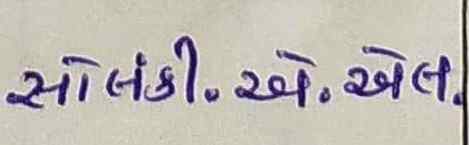 સોલંકી. એ. એલ.